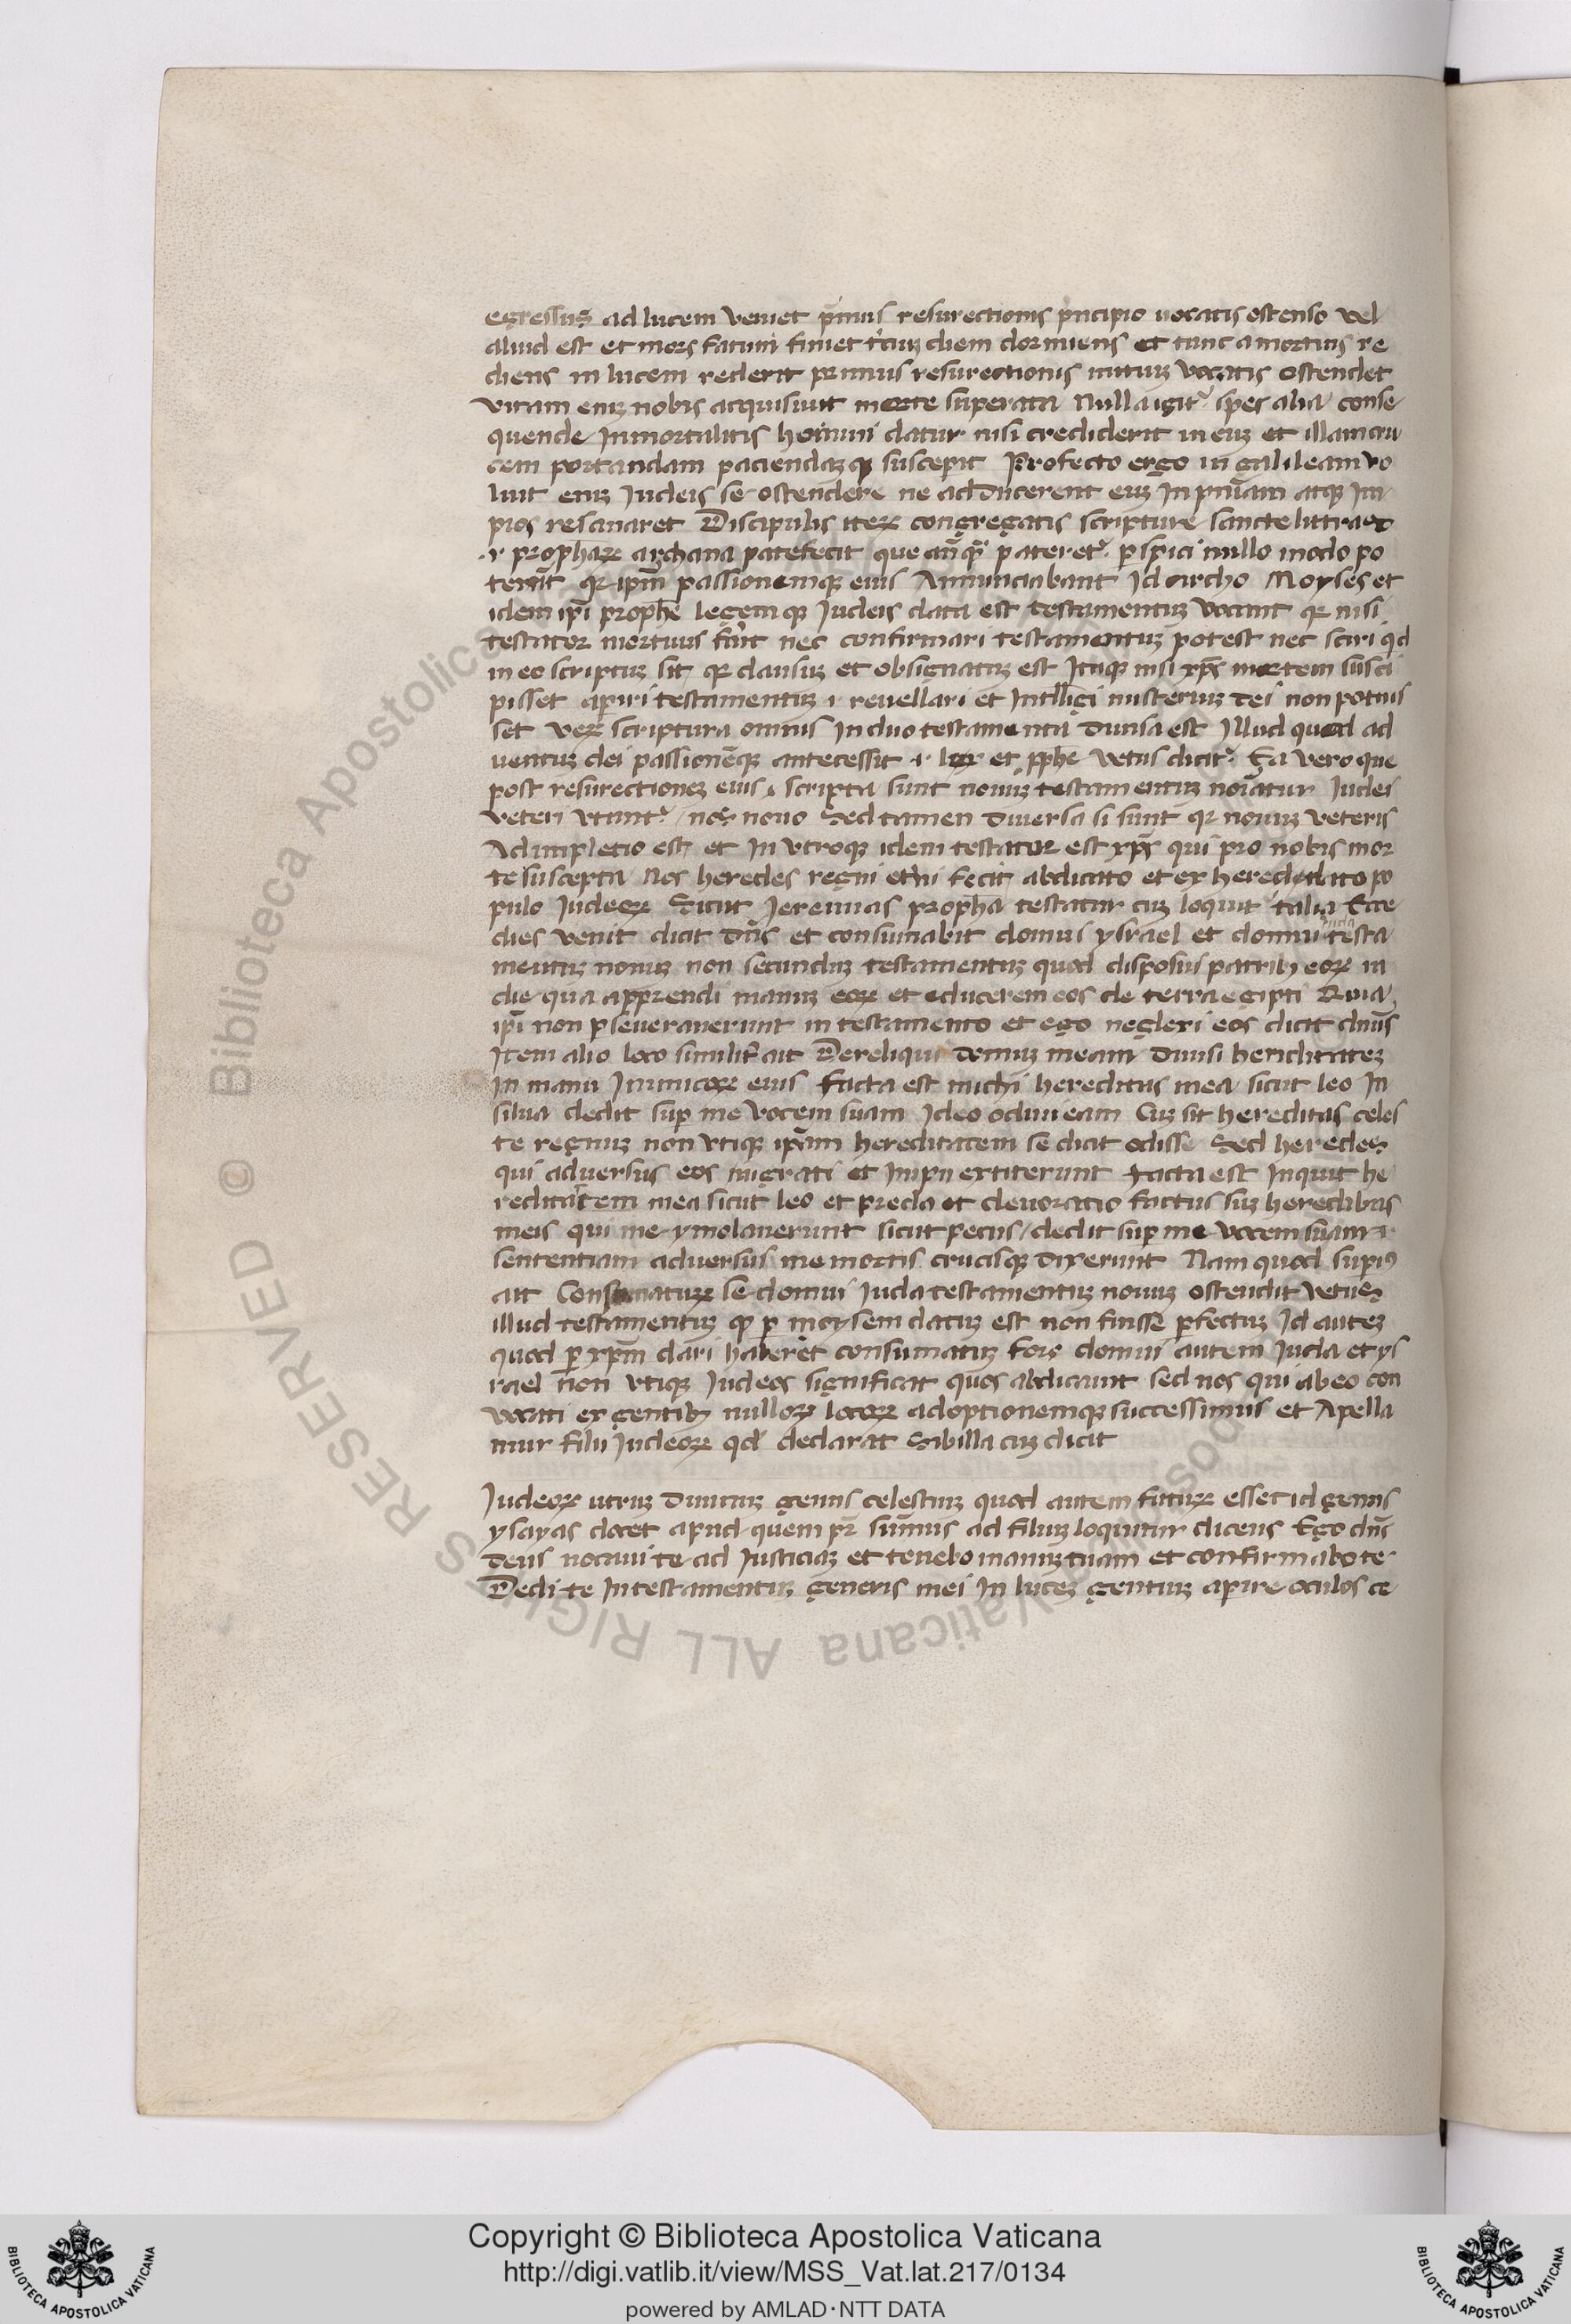 egressus ad lucem veniet p̄mus resurectionis prīcipio uocatis ostenso vel
aliud est et mors fatum finiet t'ciuʒ diem dormiens et tunc a mortuis re
diens in lucem rederit primus resurectionis initiuʒ vocatis ostendet
vitam eniʒ nobis acquisiuit morte superata Nulla igit᷑ spes alia conse
quende Inmortalitis homini datur nisi crediderit in euʒ et illam cru
cem portandam paciendaʒqꝫ suscepit Profecto ergo in galileam vo
luit eniʒ Iudeis se ostendere ne adducerent euʒ In pniam atqꝫ Im
pios resanaret Discipulis iteꝝ congregatis scripture sancte littras
.i. prophaꝝ archana patefecit que an̄q̄ pateret᷑ pspici nullo modo po
terāt qꝛ ipm̄ passionemqꝫ eius Annunciabant Id circho Moyses et
idem ipī prophe legemqꝫ Iudeis data est testamentuʒ vocant qꝛ nisi
testator mortuus fu'it nec confirmari testamentuʒ potest nec sciri qd
in eo scriptuʒ sit qꝛ clausuʒ et obsignatuʒ est Itaqꝫ nisi xp̄s mortem susci
pisset apiri testamentuʒ .i. reuellari et Intlligi misteriuʒ dei non potuis
set veꝝ scriptura omnis In duo testamenta diuisa est Illud quod ad
uentuʒ dei passionēqꝫ antecessit .i. lex et pphe vetus dicit᷑ Ea vero que
post resurectioneʒ eius scripta sunt nouuʒ testamentuʒ noīatur Iudei
veteri vtunt᷑ nos nouo Sed tamen diuersa si sunt qꝛ nouuʒ veteris
Adimpletio est et In vtroqꝫ idem testator est xp̄s qui pro nobis mor
te suscepta Nos heredes regni et'ni fecit abdicato et ex heredidato po
pulo Iudeoꝝ Sicut Ieremias propha testatur cuʒ loquit talia Ecce
dies venit dicit dn̄s et consumabit domus ysrael et domui iuda testa
mentuʒ nouuʒ non secunduʒ testamentuʒ quod disposui patribꝫ eoꝝ in
die qua apprendi manuʒ eoꝝ et educerem eos de terra egipti Quia
ipī non pseuerauerunt in testamento et ego neglexi eos dicit dn̄s
Item alio loco similit' ait Dereliqui domuʒ meam diuisi heridditateʒ
In manu Inimicoꝝ eius facta est michi hereditas mea sicut leo In
silua dedit sup me vocem suam Ideo odiui eam Cuʒ sit hereditas celes
te regnuʒ non vtiqꝫ ipam hereditatem se dicit odisse Sed heredes
qui aduersus eos ingrati et Impii extiterunt facta est Inquit he
reditatem mea sicut leo et preda et deuoratio factus suʒ heredibus
meis qui me ymolauerunt sicut pecus / dedit sup me vocem suam .i.
sententiam aduersus me mortis crucisqꝫ dixerunt Nam quod supi9
ait Consumatuꝝ se domui Iuda testamentuʒ nouuʒ ostendit vetus
illud testamentuʒ qꝫ p moysem datuʒ est non fuisse pfectuʒ Id auteʒ
quod p xpm̄ dari haberet consumatuʒ fore domui autem Iuda et ys
rael non vtiqꝫ Iudeos significat quos abdicauit sed nos qui ab eo con
uocati ex gentibꝫ nulloꝝ locoꝝ adoptionemqꝫ successimus et Apella
mur filii Iudeoꝝ qd declarat Sibilla cuʒ dicit
Iudeoꝝ utruʒ diuinuʒ genus celestuʒ quod autem futuꝝ esset id genus
ysayas docet apud quem pr̄ sum̄us ad filiuʒ loquitur dicens Ego dn̄s
deus uocaui te ad Iusticiaʒ et tenebo manuʒ tuam et confirmabo te
Dedi te In testamentuʒ generis mei In luceʒ gentiuʒ apire oculos ce
Biblioteca Apostolica Vaticana ALL RIGHTS RESERVED ©
Copyright © Biblioteca Apostolica Vaticana
http://digi.vatlib.it/view/MSS_Vat.lat.217/0134
powered by AMLAD·NTT DATA
BIBLIOTECA APOSTOLICA VATICANA
BIBLIOTECA APOSTOLICA VATICANA